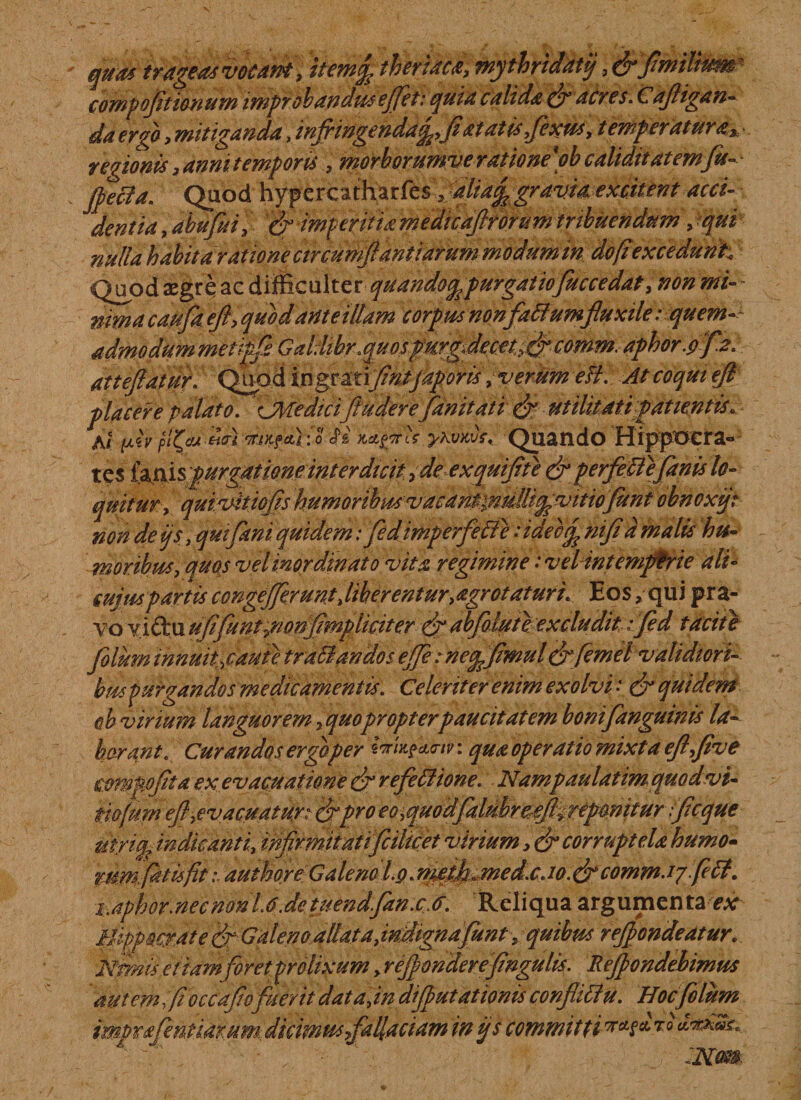 quas trageas vocant, itemq́; theriacæ, mythridatij, & similium
compositionum improbandus esset: quia calida & acres. Castigan-
da ergo, mitiganda, infringendaq́;, si ætatis, sexus, temperaturæ,
regionis, anni temporis, morborumve ratione ob caliditatem su-
specta. Quod hypercatharses, aliaq́; gravia excitent acci-
dentia, abusui, & imperitiæ medicastrorum tribuendum, qui
nulla habita ratione circumstantiarum modum in dosi excedunt.
Quod ægrè ac difficulter quandoq́; purgatio succedat, non mi-
nima causa est, quòd ante illam corpus non factum fluxile: quem-
admodum metipse Gal. libr. quos purg. decet, & comm. aphor. 9. s. 2.
attestatur. Quod ingrati sint saporis, verum est. At coqui est
placere palato. Medici studere sanitati & utilitati patientis.
Αἱ μὲν ῥίζαι εἰσὶ πικραὶ: ὁ δὲ καρπὸς γλυκύς. Quando Hippocra-
tes sanis purgatione interdicit, de exquisitè & perfectè sanis lo-
quitur, qui vitiosis humoribus vacant, nulliq́; vitio sunt obnoxij:
non de ijs, qui sani quidem: sed imperfectè: ideoq́; nisi à malis hu-
moribus, quos vel inordinato vitæ regimine: vel intemperie ali-
cujus partis congesserunt, liberentur, ægrotaturi. Eos, qui pra-
vo victu usi sunt, non simpliciter & absolutè excludit: sed tacitè
solum innuit, cautè tractandos esse: neq́; simul & semel validiori-
bus purgandos medicamentis. Celeriter enim exolvi: & quidem
ob virium languorem, quo propter paucitatem boni sanguinis la-
borant. Curandos ergo per ἐπίκρασιν: quæ operatio mixta est, sive
composita ex evacuatione & refectione. Nam paulatim quod vi-
tiosum est, evacuatur: & pro eo, quod salubre est, reponitur: sicque
utriq́; indicanti, infirmitati scilicet virium, & corruptelæ humo-
rum satisfit: authore Galeno l. 9. meth. med. c. 10. & comm. 17. sect.
1. aphor. nec non l. 6. de tuend. san. c. 6. Reliqua argumenta ex
Hippocrate & Galeno allata, indigna sunt, quibus respondeatur.
Nimis etiam foret prolixum, respondere singulis. Respondebimus
autem, si occasio fuerit data, in disputationis conflictu. Hoc solum
in præsentiarum dicimus, fallaciam in ijs committi παρὰ τὸ ἁπλῶς.
Nam